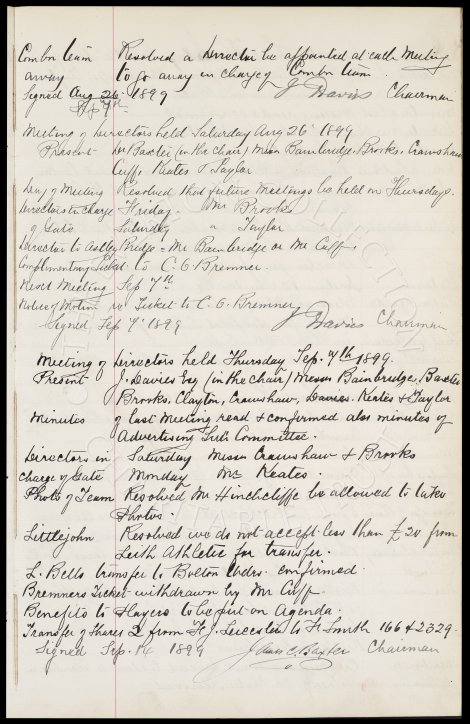 Combn team Resolved a Director be appointed at each Meeting
away to go away in charge of Combn team.
Signed Aug 26 1899 J Davies Chairman
Sep 7th
Meeting of Directors held Saturday Aug 26th 1899
Present Dr Baxter (in the chair) Messrs Bainbridge, Brooks, Crawshaw
Cuff, Keates & Taylor
Day of Meeting Resolved that future meetings be held on Thursdays.
Directors in charge Friday - Mr Brooks
of Gate Saturday " Taylor
Director to Astley Bridge = Mr Bainbridge or Mr Cuff
Complimentary Ticket to C. G. Bremner.
Next Meeting Sep 7th
Notice of Motion re Ticket to C. G. Bremner
Signed Sep 7 1899 J Davies Chairman
Meeting of Directors held Thursday Sep. 7th 1899.
Present J. Davies Esq (in the chair) Messrs Bainbridge, Baxter
Brooks, Clayton, Crawshaw, Davies, Keates & Taylor
Minutes of last Meeting read & confirmed also minutes of
Advertising Sub Committee.
Directors in Saturday Messrs Crawshaw & Brooks
charge of Gate Monday Mr Keates.
Photo of Team Resolved Mr Hinchcliffe be allowed to take
Photos.
Littlejohn Resolved we do not accept less than £20 from
Leith Athletic for transfer.
L. Bells transfer to Bolton Wdrs. confirmed.
Bremners Ticket withdrawn by Mr Cuff.
Benefits to Players to be put on Agenda.
Transfer of Shares 2 from H. J. Leicester to H Smith 166 & 2329.
Signed Sep. 14 1899 James C Baxter Chairman